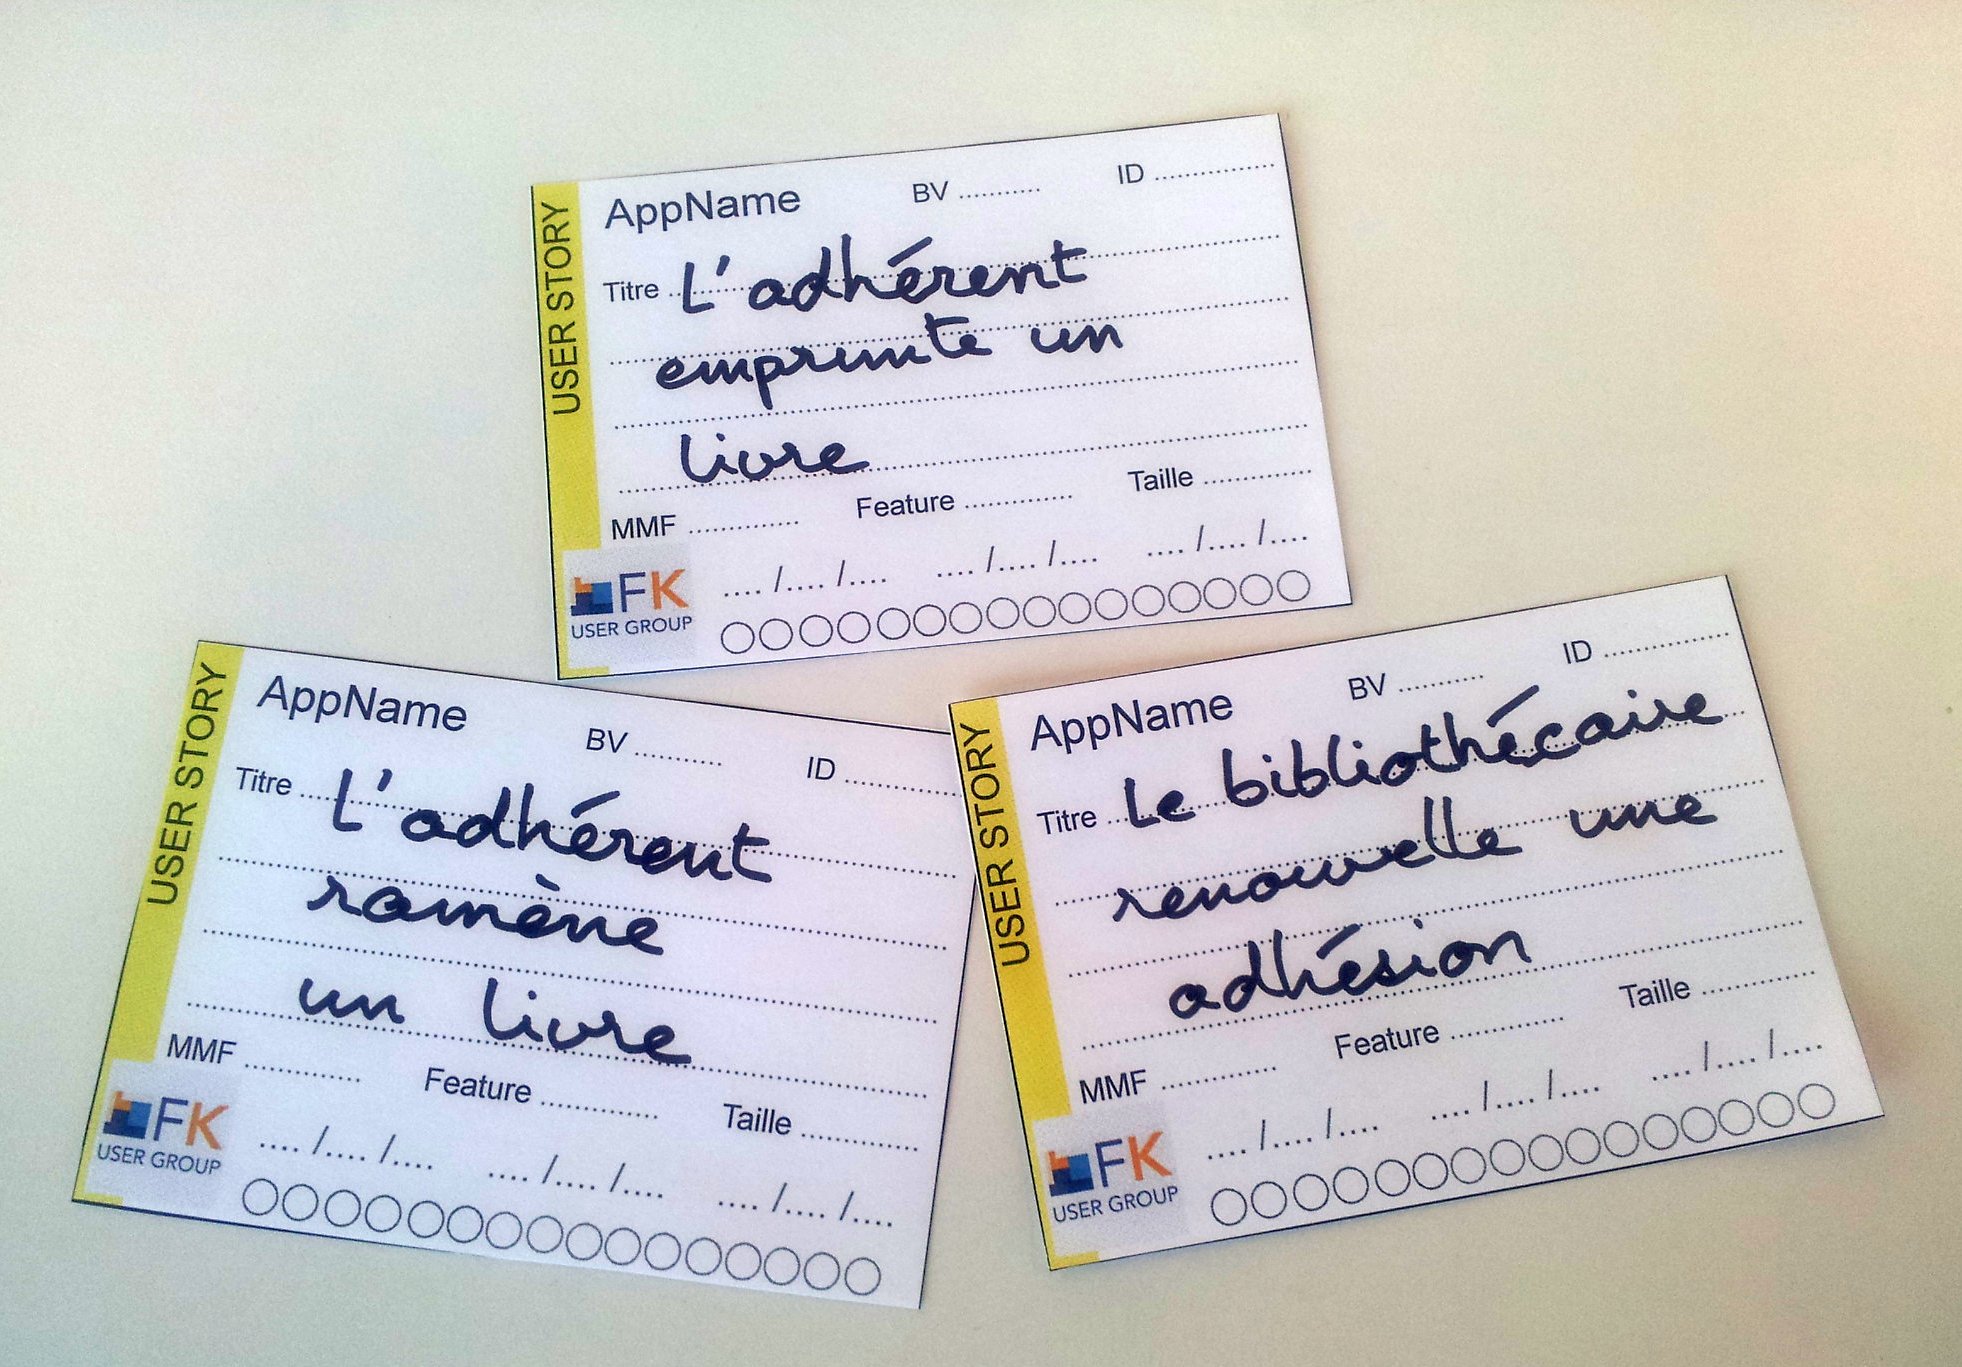 USER STORY
AppName BV .......... ID ................
Titre L'adhérent
emprunte un
livre
MMF .............. Feature .............. Taille ..............
.... /.... /.... .... /.... /.... .... /.... /....
FK
USER GROUP
USER STORY
AppName BV .......... ID ................
Titre ... L'adhérent
ramène
un livre
MMF .............. Feature .............. Taille ..............
.... /.... /.... .... /.... /.... .... /.... /....
FK
USER GROUP
USER STORY
AppName BV .......... ID ................
Titre ... Le bibliothécaire
renouvelle une
adhésion
MMF .............. Feature .............. Taille ..............
.... /.... /.... .... /.... /.... .... /.... /....
FK
USER GROUP